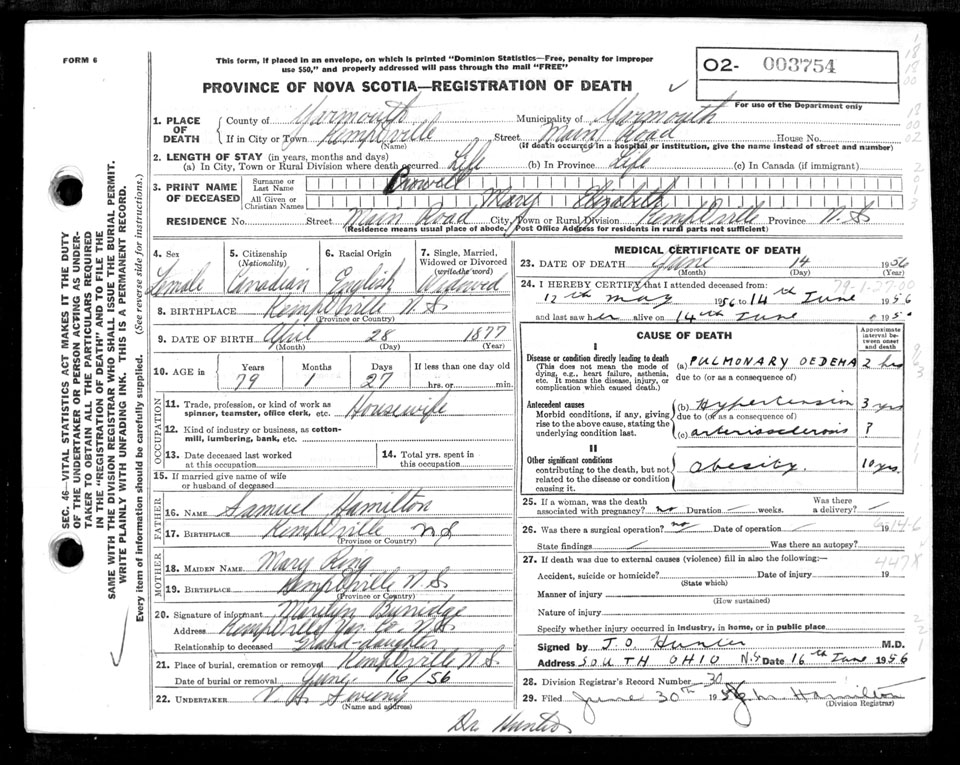 FORM 6
This form, if placed in an envelope, on which is printed "Dominion Statistics—Free, penalty for improper
use $50," and properly addressed will pass through the mail "FREE"
PROVINCE OF NOVA SCOTIA—REGISTRATION OF DEATH
O2- 003754
For use of the Department only
1. PLACE OF DEATH
County of Yarmouth Municipality of Yarmouth
If in City or Town Kemptville Street Main Road House No.
(Name) (If death occurred in a hospital or institution, give the name instead of street and number)
2. LENGTH OF STAY (in years, months and days)
(a) In City, Town or Rural Division where death occurred Life (b) In Province Life (c) In Canada (if immigrant)
3. PRINT NAME OF DECEASED
Surname or Last Name Crowell
All Given or Christian Names Mary Elizabeth
RESIDENCE No. Street Main Road City, Town or Rural Division Kemptville Province N.S
(Residence means usual place of abode. Post Office Address for residents in rural parts not sufficient)
4. Sex Female
5. Citizenship (Nationality) Canadian
6. Racial Origin English
7. Single, Married, Widowed or Divorced (write the word) Widowed
8. BIRTHPLACE Kemptville N.S.
(Province or Country)
9. DATE OF BIRTH April 28 1877
(Month) (Day) (Year)
10. AGE in Years Months Days If less than one day old
79 1 27 hrs. or min.
OCCUPATION
11. Trade, profession, or kind of work as spinner, teamster, office clerk, etc. Housewife
12. Kind of industry or business, as cotton-mill, lumbering, bank, etc.
13. Date deceased last worked at this occupation
14. Total yrs. spent in this occupation
15. If married give name of wife or husband of deceased
FATHER
16. NAME Samuel Hamilton
17. BIRTHPLACE Kemptville N S
(Province or Country)
MOTHER
18. MAIDEN NAME Mary Ring
19. BIRTHPLACE Kemptville N.S.
(Province or Country)
20. Signature of informant Marilyn Burridge
Address Kemptville Yar. Co. N.S.
Relationship to deceased Grand-daughter
21. Place of burial, cremation or removal Kemptville N.S.
Date of burial or removal June 16/56
22. UNDERTAKER V. S. Sweeny
(Name and address)
MEDICAL CERTIFICATE OF DEATH
23. DATE OF DEATH June 14 1956
(Month) (Day) (Year)
24. I HEREBY CERTIFY that I attended deceased from:
79-1-27-00
12th may 1956 to 14th June 1956
and last saw her alive on 14th June 1956
CAUSE OF DEATH
Approximate interval between onset and death
I
Disease or condition directly leading to death
(This does not mean the mode of dying, e.g., heart failure, asthenia, etc. It means the disease, injury, or complication which caused death.)
(a) PULMONARY OEDEMA 2 hrs
due to (or as a consequence of)
Antecedent causes
Morbid conditions, if any, giving rise to the above cause, stating the underlying condition last.
(b) Hypertension 3 yrs
due to (or as a consequence of)
(c) arteriosclerosis ?
II
Other significant conditions
contributing to the death, but not related to the disease or condition causing it.
Obesity. 10 yrs.
25. If a woman, was the death associated with pregnancy? no Duration — weeks. Was there a delivery? —
26. Was there a surgical operation? no Date of operation — 19
State findings — Was there an autopsy?
27. If death was due to external causes (violence) fill in also the following:—
447X
Accident, suicide or homicide? Date of injury 19
(State which)
Manner of injury
(How sustained)
Nature of injury
Specify whether injury occurred in industry, in home, or in public place
Signed by J.O Hunter M.D.
Address SOUTH OHIO N.S Date 16th June 1956
28. Division Registrar's Record Number 30
29. Filed June 30th 1956 Hamilton
(Division Registrar)
Dr. Hunter
SEC. 46—VITAL STATISTICS ACT MAKES IT THE DUTY
OF THE UNDERTAKER OR PERSON ACTING AS UNDER-
TAKER TO OBTAIN ALL THE PARTICULARS REQUIRED
IN THE "REGISTRATION OF DEATH" AND TO FILE THE
SAME WITH THE DIVISION REGISTRAR WHO SHALL ISSUE THE BURIAL PERMIT.
WRITE PLAINLY WITH UNFADING INK. THIS IS A PERMANENT RECORD.
Every item of information should be carefully supplied. (See reverse side for instructions.)